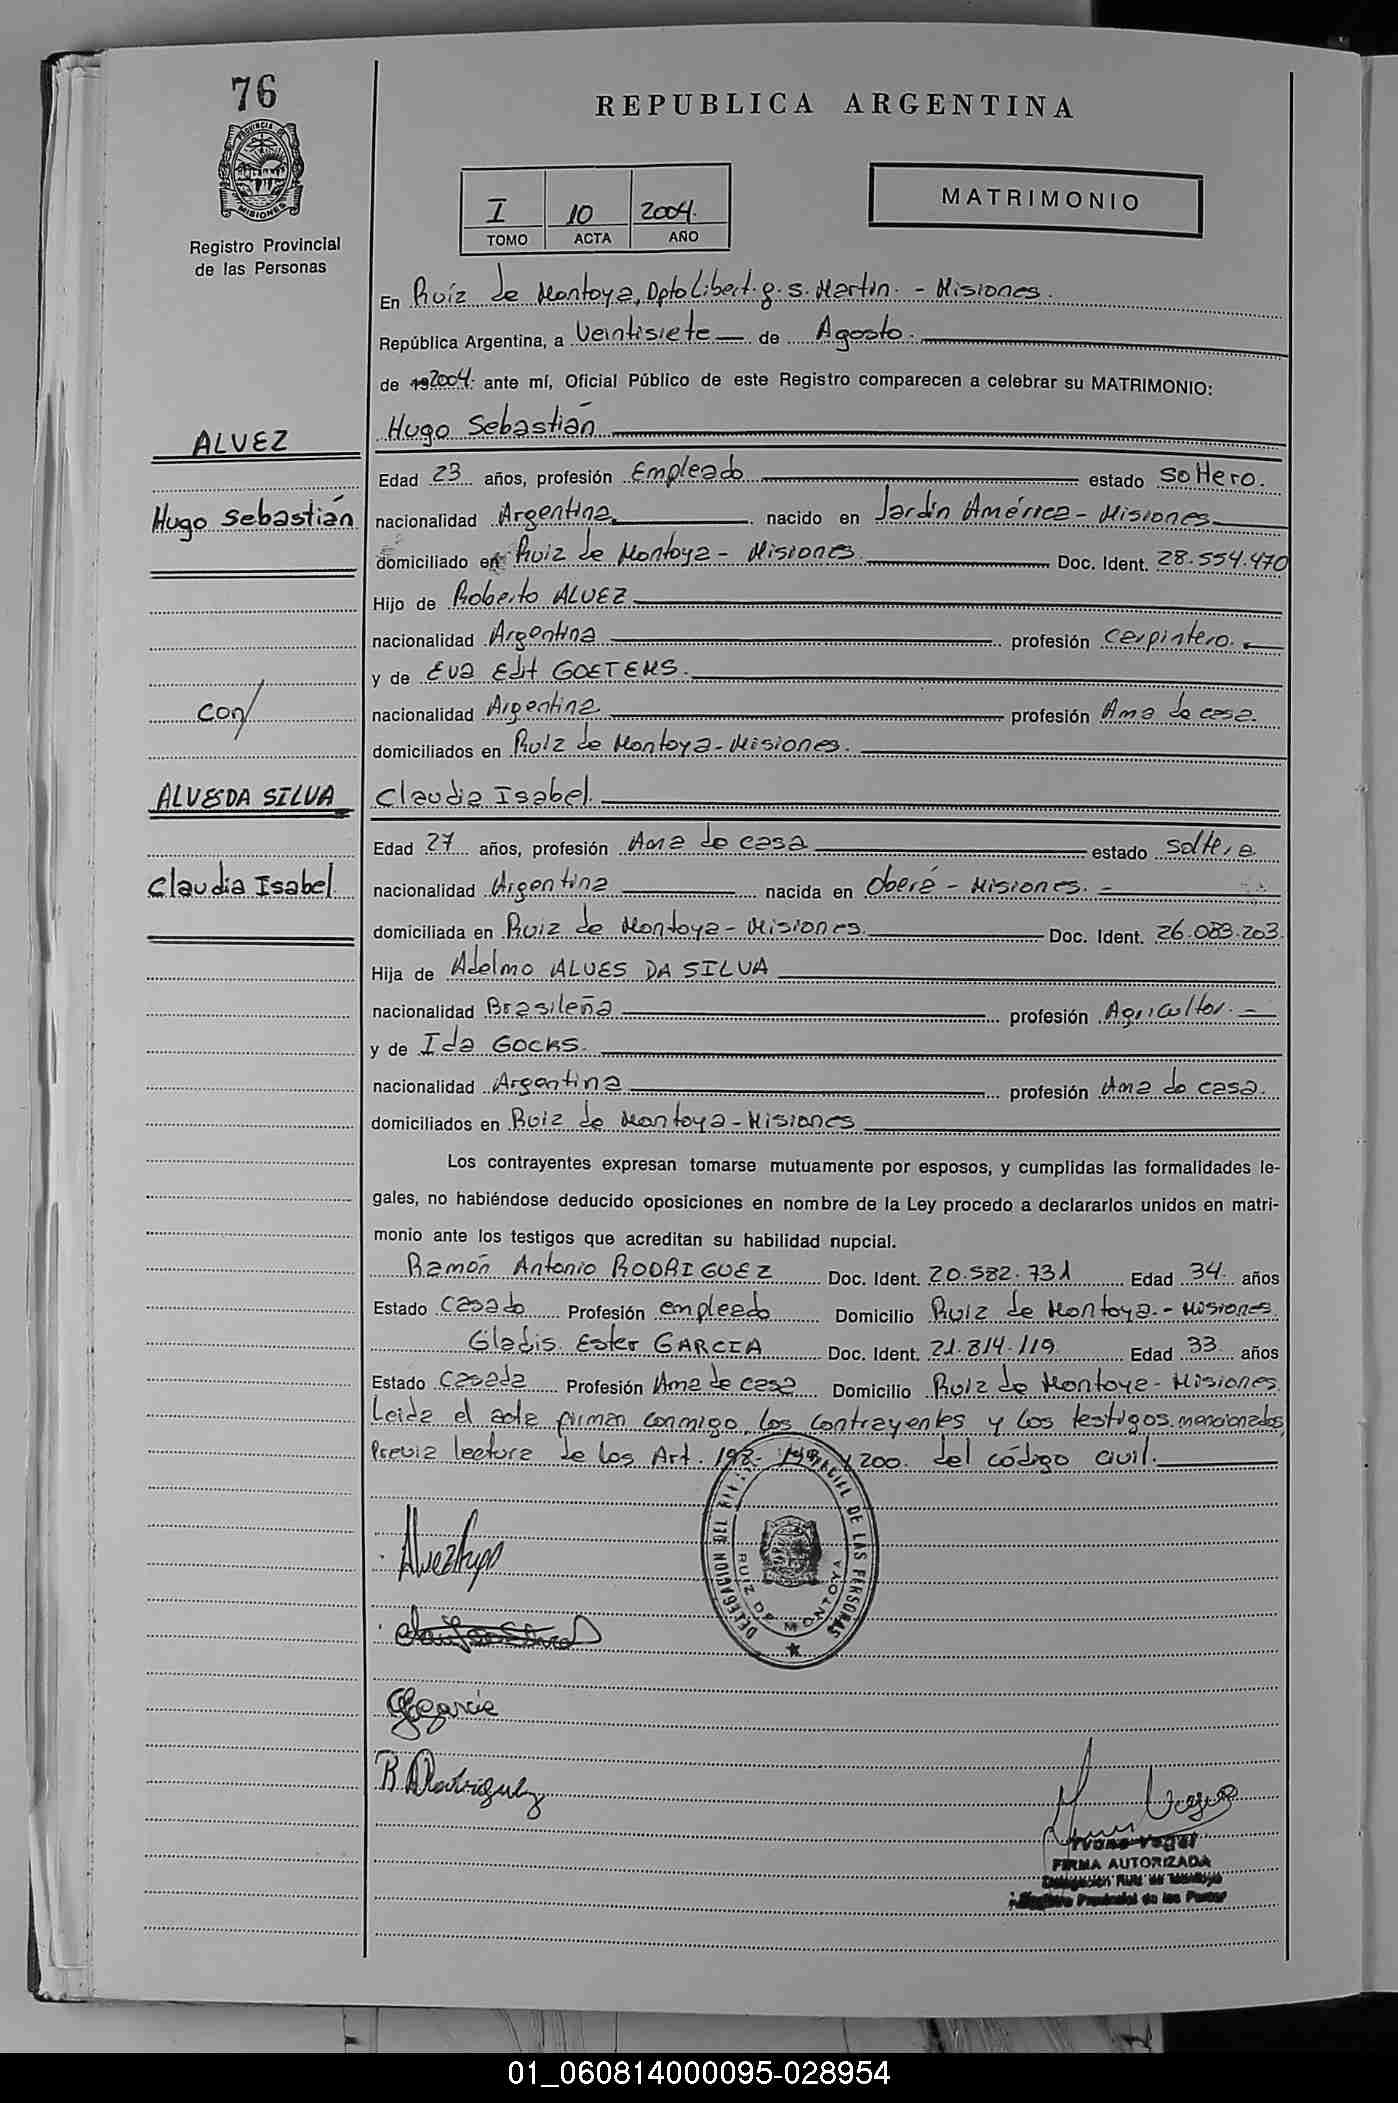 76
REPUBLICA ARGENTINA
PROVINCIA DE MISIONES
Registro Provincial
de las Personas
I 10 2004.
TOMO ACTA AÑO
MATRIMONIO
En Ruíz de Montoya, Dpto Libert. g. S. Martín. - Misiones.
República Argentina, a Veintisiete de Agosto.
de 19 2004. ante mí, Oficial Público de este Registro comparecen a celebrar su MATRIMONIO:
ALVEZ
Hugo Sebastián
Edad 23 años, profesión Empleado estado Soltero.
Hugo Sebastián
nacionalidad Argentina nacido en Jardín América - Misiones
domiciliado en Ruiz de Montoya - Misiones Doc. Ident. 28.554.470
Hijo de Roberto ALVEZ
nacionalidad Argentina profesión Carpintero.
y de Eva Edit GOETEMS.
con/
nacionalidad Argentina profesión Ama de casa.
domiciliados en Ruiz de Montoya - Misiones.
ALVES DA SILVA
Claudia Isabel.
Edad 27 años, profesión Ama de casa estado Soltera
Claudia Isabel.
nacionalidad Argentina nacida en Oberá - Misiones. -
domiciliada en Ruiz de Montoya - Misiones. Doc. Ident. 26.083.203.
Hija de Adelmo ALVES DA SILVA
nacionalidad Brasileña profesión Agricultor. -
y de Ida GOCKS.
nacionalidad Argentina profesión Ama de casa.
domiciliados en Ruiz de Montoya - Misiones
Los contrayentes expresan tomarse mutuamente por esposos, y cumplidas las formalidades le-
gales, no habiéndose deducido oposiciones en nombre de la Ley procedo a declararlos unidos en matri-
monio ante los testigos que acreditan su habilidad nupcial.
Ramón Antonio RODRIGUEZ Doc. Ident. 20.582.731 Edad 34 años
Estado Casado Profesión empleado Domicilio Ruiz de Montoya. - Misiones
Gladis Ester GARCIA Doc. Ident. 21.814.119 Edad 33 años
Estado Casada Profesión Ama de casa Domicilio Ruiz de Montoya - Misiones
Leída el acta firman conmigo, los contrayentes y los testigos mencionados,
Previa lectura de los Art. 198- 199 y 200. del código civil.
DELEGACION DEL DE LAS PERSONAS
RUIZ DE MONTOYA
Alvez Hugo
Garcia
R. A Rodriguez
FIRMA AUTORIZADA
Delegación Ruiz de Montoya
Registro Provincial de las Person
01_060814000095-028954